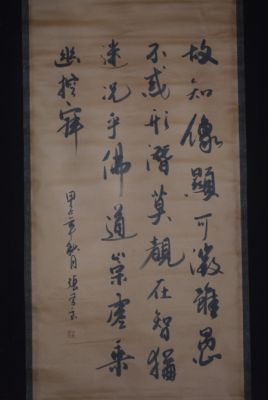 故知像顯可徵雖愚
不惑形潛莫覩在智猶
迷況乎佛道崇虛乘
幽控寂
甲子年秋月